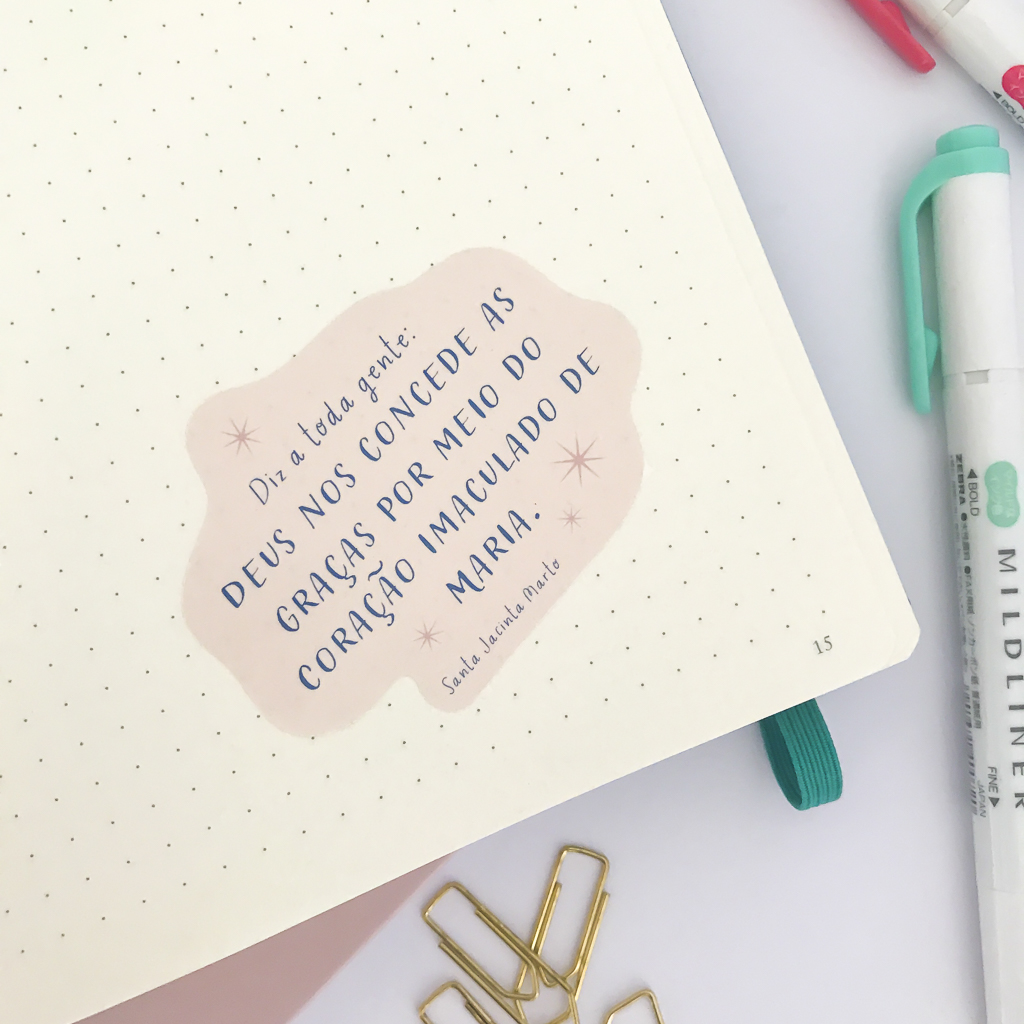 Diz a toda gente:
DEUS NOS CONCEDE AS
GRAÇAS POR MEIO DO
CORAÇÃO IMACULADO DE
MARIA.
Santa Jacinta Marto
15
BOLD
◀BOLD
ZEBRA
MILDLINER
FINE▶
JAPAN